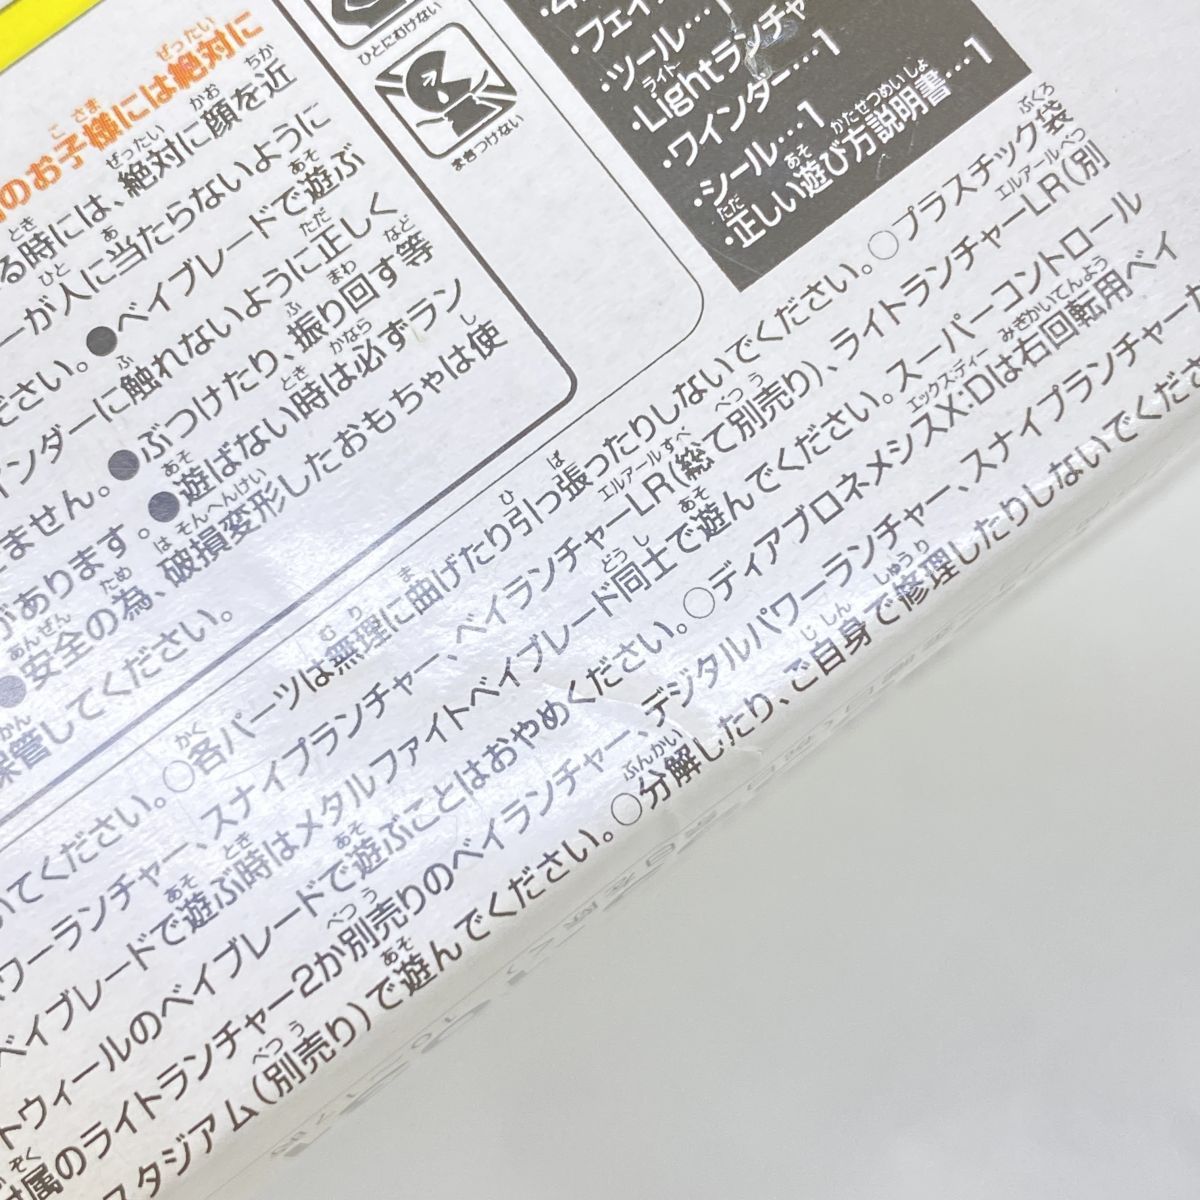 のお子様には絶対に
る時には、絶対に顔を近
ーが人に当たらないように
ださい。●ベイブレードで遊ぶ
インダーに触れないように正しく
ません。●ぶつけたり、振り回す等
があります。●遊ばない時は必ずラン
●安全の為、破損変形したおもちゃは使
保管してください。
ひとにむけない
まきつけない
・フェイ
・ツール…1
・Lightランチャ
・ワインダー…1
・シール…1
・正しい遊び方説明書…1
いてください。○各パーツは無理に曲げたり引っ張ったりしないでください。○プラスチック袋
ワーランチャー、スナイプランチャー、ベイランチャーLR(総て別売り)、ライトランチャーLR(別
ベイブレードで遊ぶ時はメタルファイトベイブレード同士で遊んでください。スーパーコントロール
トウィールのベイブレードで遊ぶことはおやめください。○ディアブロネメシスX:Dは右回転用ベイ
付属のライトランチャー2か別売りのベイランチャー、デジタルパワーランチャー、スナイプランチャーか
スタジアム(別売り)で遊んでください。○分解したり、ご自身で修理したりしないでくださ